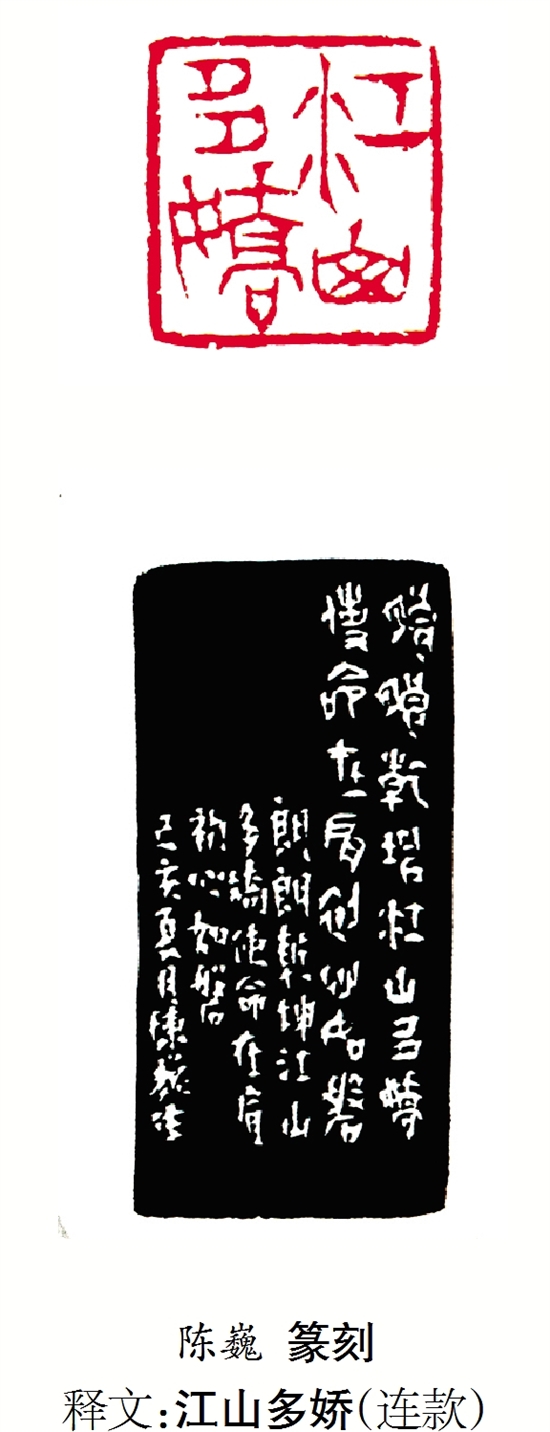 江山
多娇
朗朗乾坤江山多娇
使命在肩初心如磐
朗朗乾坤江山
多娇使命在肩
初心如磐
己亥夏月陈巍法
陈巍 篆刻
释文:江山多娇(连款)